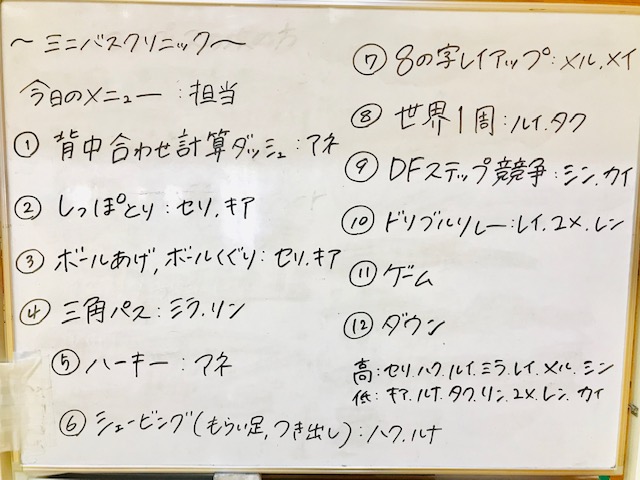 ～ミニバスクリニック～
今日のメニュー：担当
① 背中合わせ計算ダッシュ：アネ
② しっぽとり：セリ.キア
③ ボールあげ,ボールくぐり：セリ.キア
④ 三角パス：ミラ.リン
⑤ ハーキー：アネ
⑥ シュービング(もらい足,つき出し)：ハク.ルナ
⑦ 8の字レイアップ：メル.メイ
⑧ 世界1周：ルイ.タク
⑨ DFステップ競争：シン.カイ
⑩ ドリブルリレー：レイ.ユメ.レン
⑪ ゲーム
⑫ ダウン
高：セリ.ハク.ルイ.ミラ.レイ.メル.シン
低：キア.ルナ.タク.リン.ユメ.レン.カイ